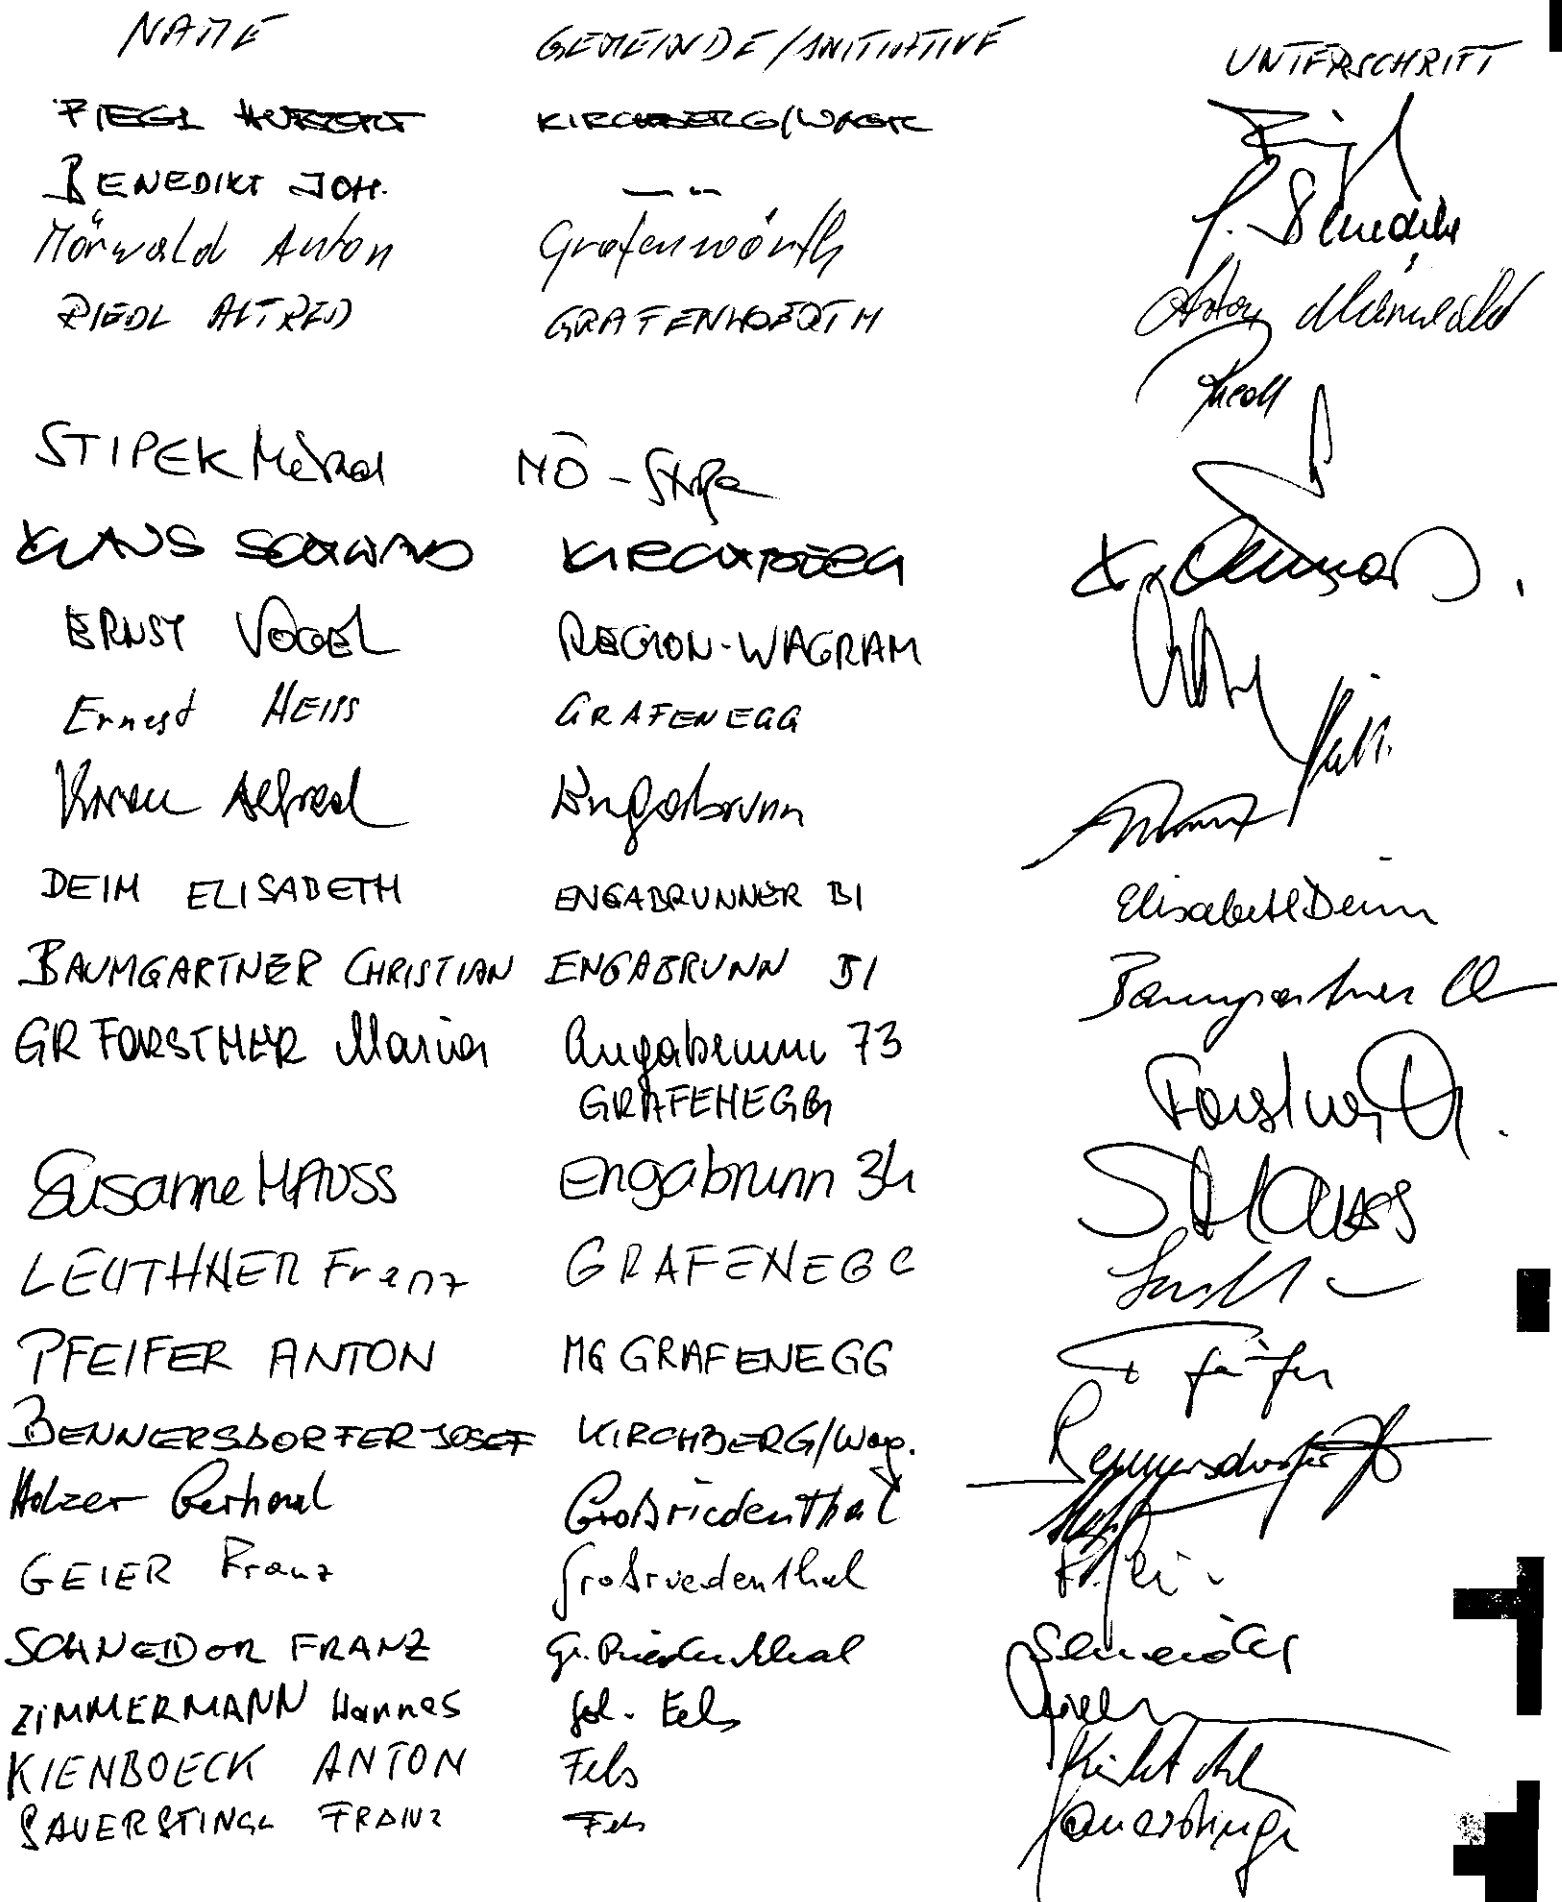 NAME GEMEINDE/INITIATIVE UNTERSCHRIFT
FIEGL HUBERT KIRCHBERG/WAGR
BENEDIKT JOH. — " — J. Benedikt
Mörwald Anton Grafenwörth Anton Mörwald
RIEDL ALFRED GRAFENWOERTH Riedl
STIPEK NÖ-
KLAUS SCHWAB KIRCHBERG
ERNST VOGEL REGION-WAGRAM
Ernest HEISS GRAFENEGG
Alfred Engabrunn
DEIM ELISABETH ENGABRUNNER BI Elisabeth Deim
BAUMGARTNER CHRISTIAN ENGABRUNN BI Baumgartner Ch
GR FORSTNER Maria Engabrunn 73
GRAFENEGG Forstner
Susanne MAUSS Engabrunn 34 S Mauss
LEUTHNER Franz GRAFENEGG
PFEIFER ANTON MG GRAFENEGG Pfeifer
BENNERSDORFER JOSEF KIRCHBERG/Wag. Bennersdorfer
Holzer Gerhard Großriedenthal
GEIER Franz Großriedenthal
SCHNEIDER FRANZ Gr. Riedenthal Schneider
ZIMMERMANN Hannes Fels
KIENBOECK ANTON Fels
SAUERSTINGL FRANZ Fels Sauerstingl